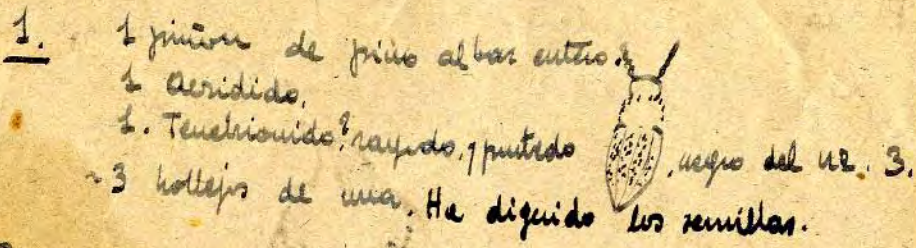 1. 1 piñon de pino albar entero.
1 Acridido.
1. Tenebrionido? rayado, y punteado , negro del nº. 3.
~3 hollejos de uva. Ha digerido las semillas.